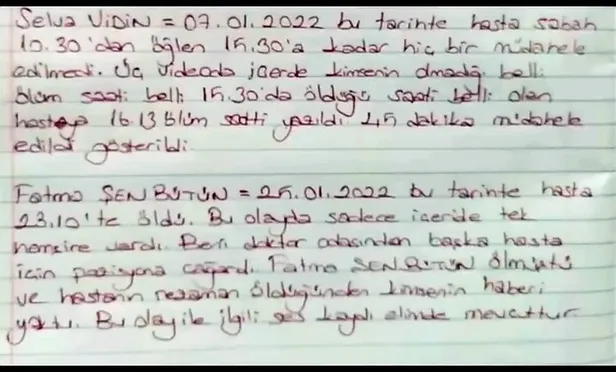 Selva VİDİN = 07.01.2022 bu tarihte hasta sabah
10.30'dan öğlen 15.30'a kadar hiç bir müdahele
edilmedi. Üç videoda içerde kimsenin olmadığı belli.
ölüm saati belli 15.30'da öldüğü saati belli olan
hastaya 16.13 ölüm saati yazıldı 45 dakika müdahele
edildi gösterildi.
Fatma ŞENBÜTÜN = 25.01.2022 bu tarihte hasta
23.10'te öldü. Bu olayda sadece içeride tek
hemşire vardı. Beni doktor odasından başka hasta
için pozisyona çağırdı. Fatma ŞENBÜTÜN ölmüştü
ve hastanın nezaman öldüğünden kimsenin haberi
yoktu. Bu olay ile ilgili ses kaydı elimde mevcuttur.